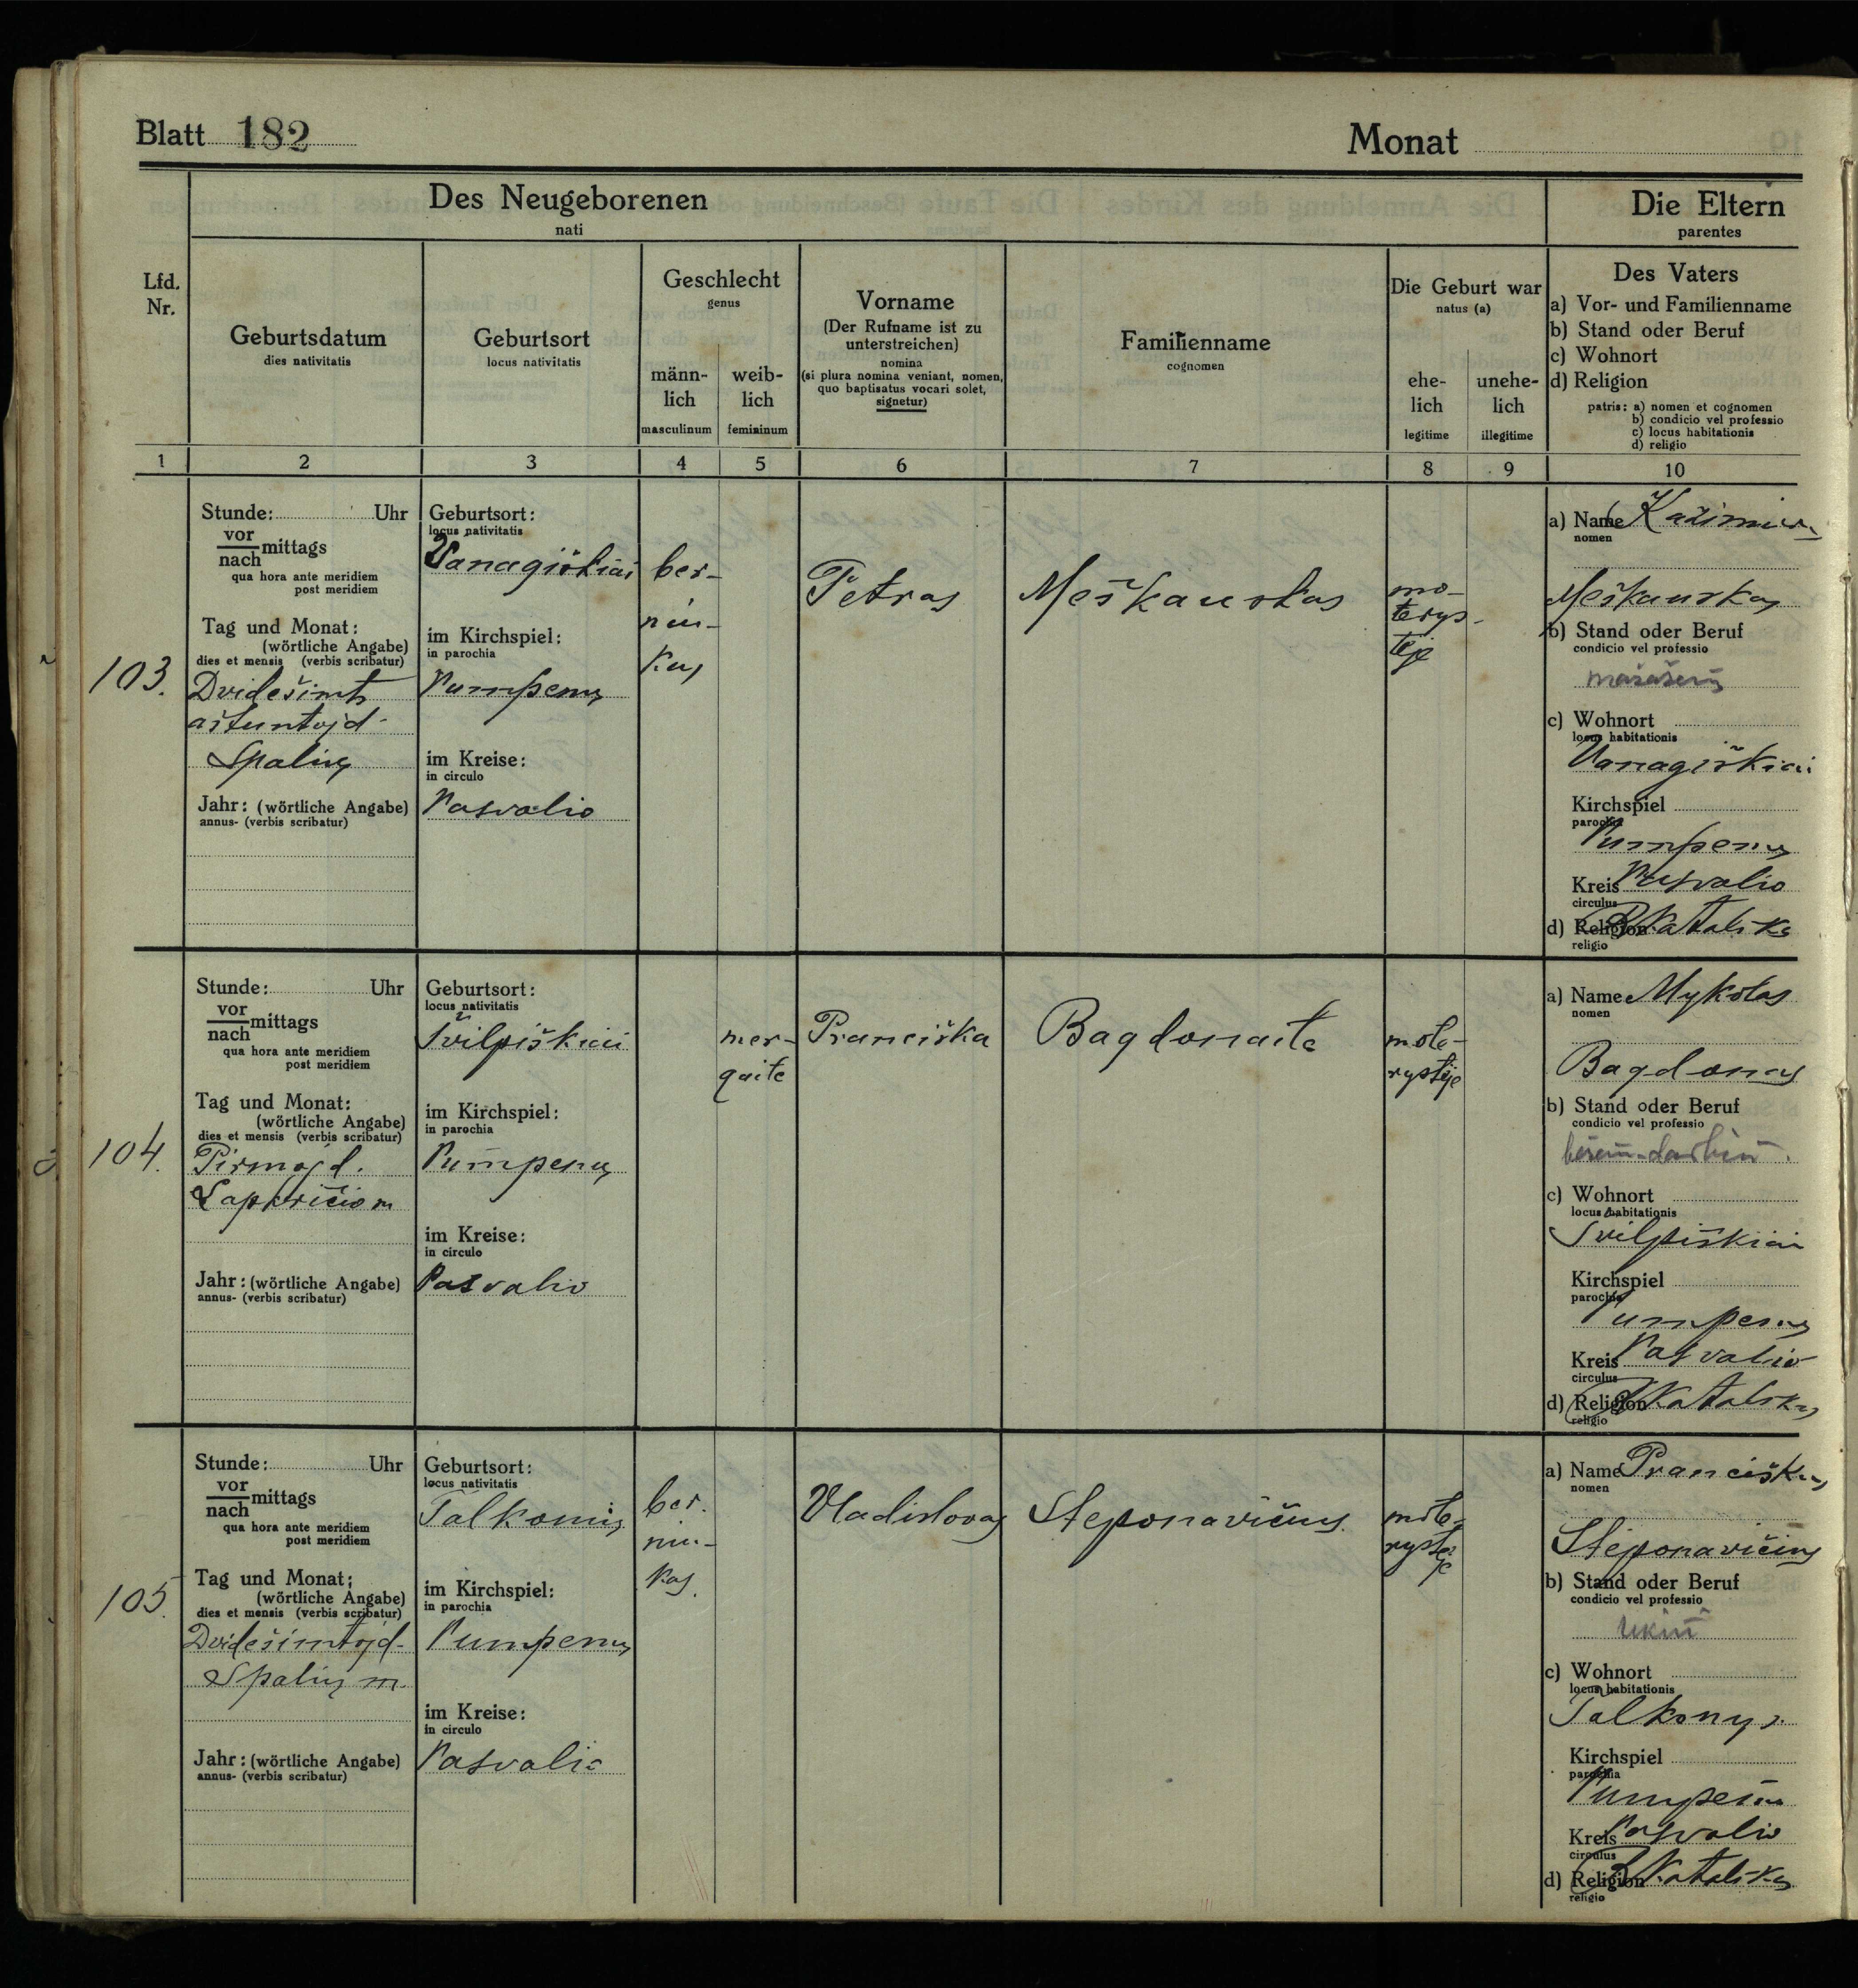 Blatt 182
Monat
Des Neugeborenen
nati
Die Eltern
parentes
Lfd.
Nr.
Geburtsdatum
dies nativitatis
Geburtsort
locus nativitatis
Geschlecht
genus
männ-
lich
masculinum
weib-
lich
femininum
Vorname
(Der Rufname ist zu
unterstreichen)
nomina
(si plura nomina veniant, nomen,
quo baptisatus vocari solet,
signetur)
Familienname
cognomen
Die Geburt war
natus (a)
ehe-
lich
legitime
unehe-
lich
illegitime
Des Vaters
a) Vor- und Familienname
b) Stand oder Beruf
c) Wohnort
d) Religion
patris: a) nomen et cognomen
b) condicio vel professio
c) locus habitationis
d) religio
1 2 3 4 5 6 7 8 9 10
103.
Stunde: Uhr
vor
nach mittags
qua hora ante meridiem
post meridiem
Tag und Monat:
(wörtliche Angabe)
dies et mensis (verbis scribatur)
Dvidešimts
aštuntoj d.
Spalių
Jahr: (wörtliche Angabe)
annus- (verbis scribatur)
Geburtsort:
locus nativitatis
Vanagiškiai
im Kirchspiel:
in parochia
Pumpenų
im Kreise:
in circulo
Pasvalio
ber-
niu-
kas
Petras
Meškauskas
mo-
terys-
tėje
a) Name Kazimieras
nomen
Meškauskas
b) Stand oder Beruf
condicio vel professio
c) Wohnort
locus habitationis
Vanagiškiai
Kirchspiel
parochia
Pumpenų
Kreis Pasvalio
circulus
d) Religion R Katalikas
religio
104.
Stunde: Uhr
vor
nach mittags
qua hora ante meridiem
post meridiem
Tag und Monat:
(wörtliche Angabe)
dies et mensis (verbis scribatur)
Pirmoj d.
Lapkričio m
Jahr: (wörtliche Angabe)
annus- (verbis scribatur)
Geburtsort:
locus nativitatis
Švilpiškiai
im Kirchspiel:
in parochia
Pumpenų
im Kreise:
in circulo
Pasvalio
mer-
gaitė
Pranciška
Bagdonaitė
mote-
rystėje
a) Name Mykolas
nomen
Bagdonas
b) Stand oder Beruf
condicio vel professio
c) Wohnort
locus habitationis
Švilpiškiai
Kirchspiel
parochia
Pumpenų
Kreis Pasvalio
circulus
d) Religion R Katalikas
religio
105.
Stunde: Uhr
vor
nach mittags
qua hora ante meridiem
post meridiem
Tag und Monat:
(wörtliche Angabe)
dies et mensis (verbis scribatur)
Dvidešimtoj d.
Spalių m.
Jahr: (wörtliche Angabe)
annus- (verbis scribatur)
Geburtsort:
locus nativitatis
Talkonių
im Kirchspiel:
in parochia
Pumpenų
im Kreise:
in circulo
Pasvalio
ber.
niu-
kas.
Vladislovas
Steponavičius
mote-
rystė-
je
a) Name Pranciškus
nomen
Steponavičius
b) Stand oder Beruf
condicio vel professio
ūkin
c) Wohnort
locus habitationis
Talkonys
Kirchspiel
parochia
Pumpenų
Kreis Pasvalio
circulus
d) Religion R Katalikas
religio